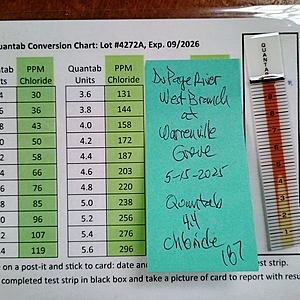 uantab Conversion Chart: Lot #4272A, Exp. 09/2026
uantab Units PPM Chloride Quantab Units PPM Chloride
4 30 3.6 131
6 36 3.8 144
8 43 4.0 158
0 50 4.2 172
2 58 4.4 187
4 66 4.6 203
6 76 4.8 220
8 85 5.0 238
0 96 5.2 256
2 107 5.4 276
4 119 5.6 296
DuPage River
West Branch
at
Warrenville
Grove
5-15-2025
Quantab
4.4
Chloride
187
QUANTAB
e on a post-it and stick to card: date and
st strip.
completed test strip in black box and take a picture of card to report with resu